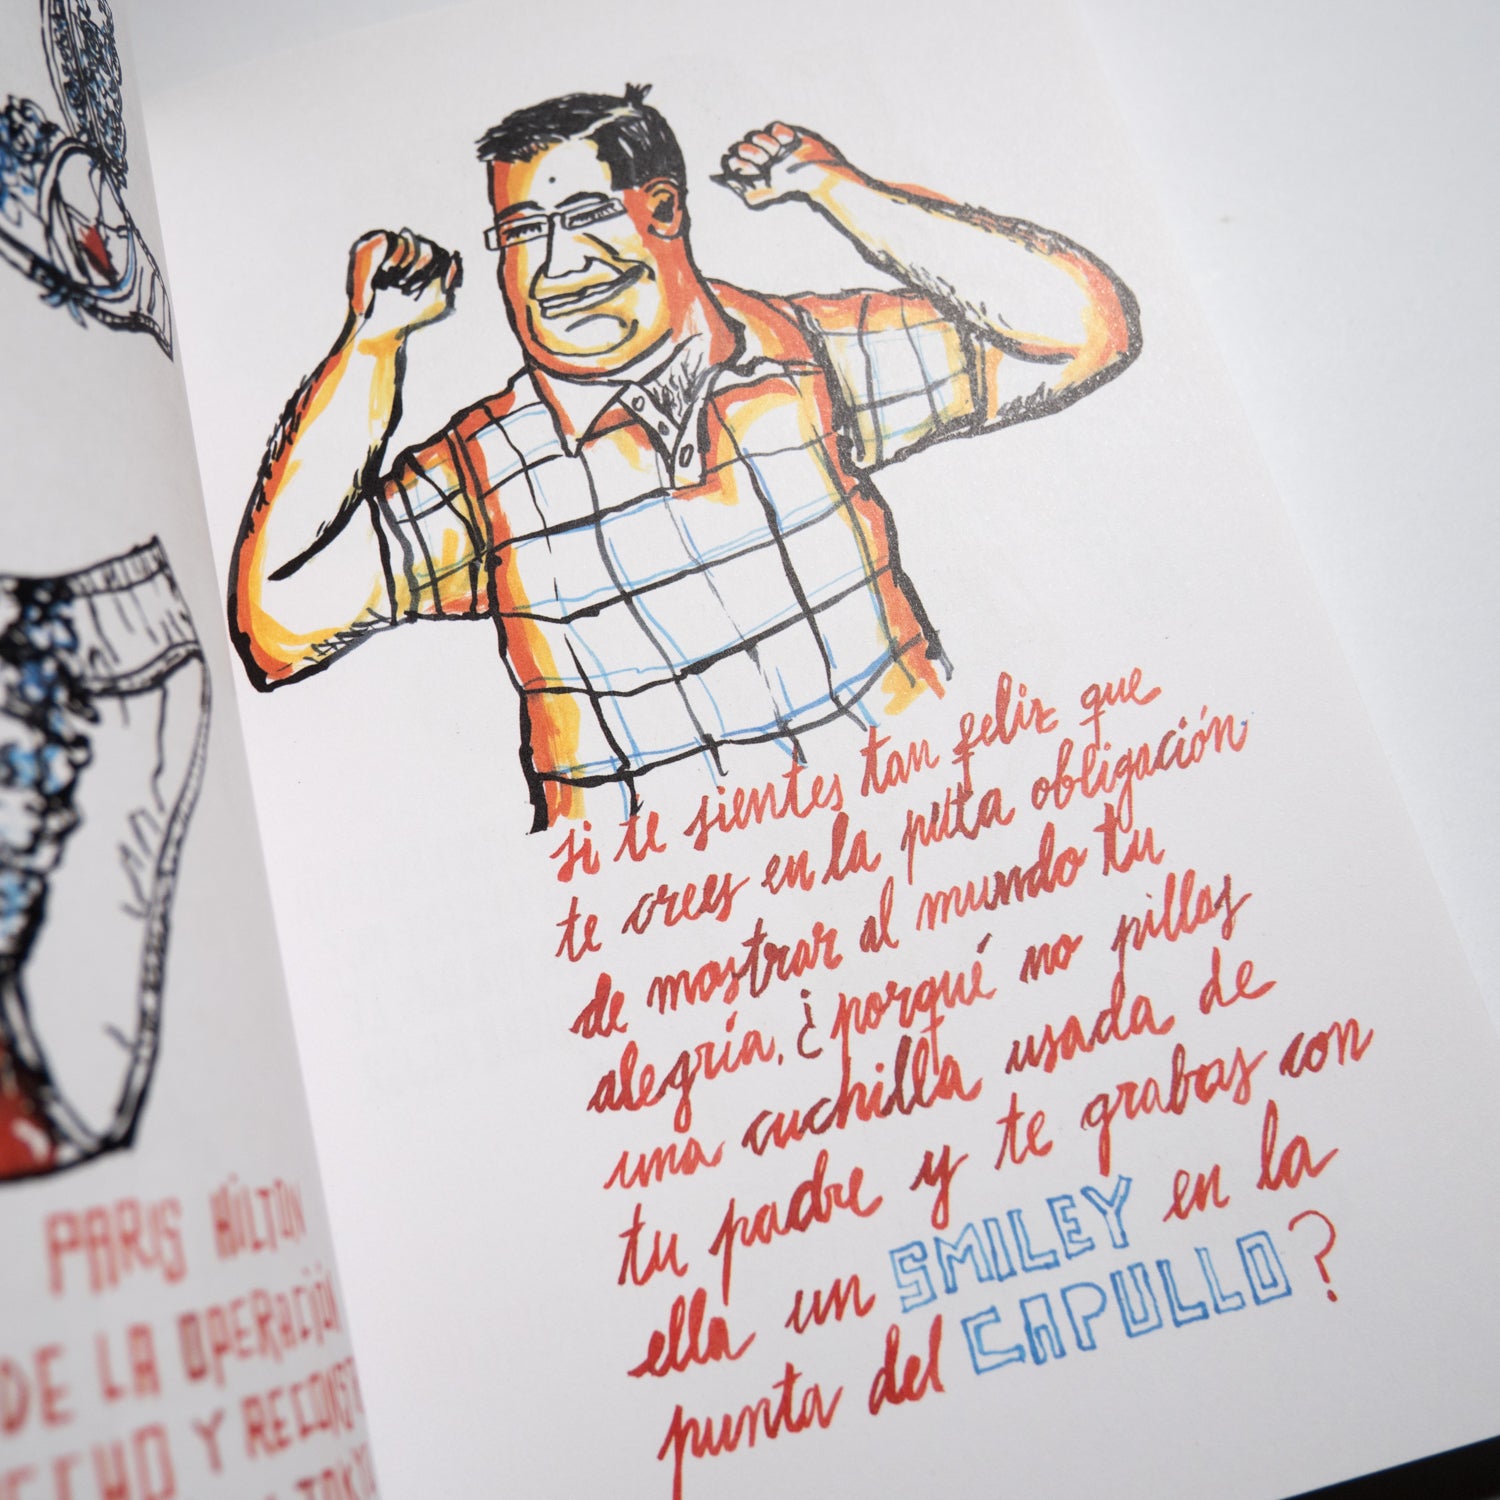 PARIS HILTON
DE LA OPERACIÓN
Y
si te sientes tan feliz que
te crees en la puta obligación
de mostrar al mundo tu
alegría, ¿porqué no pillas
una cuchilla usada de
tu padre y te grabas con
ella un SMILEY en la
punta del CAPULLO?